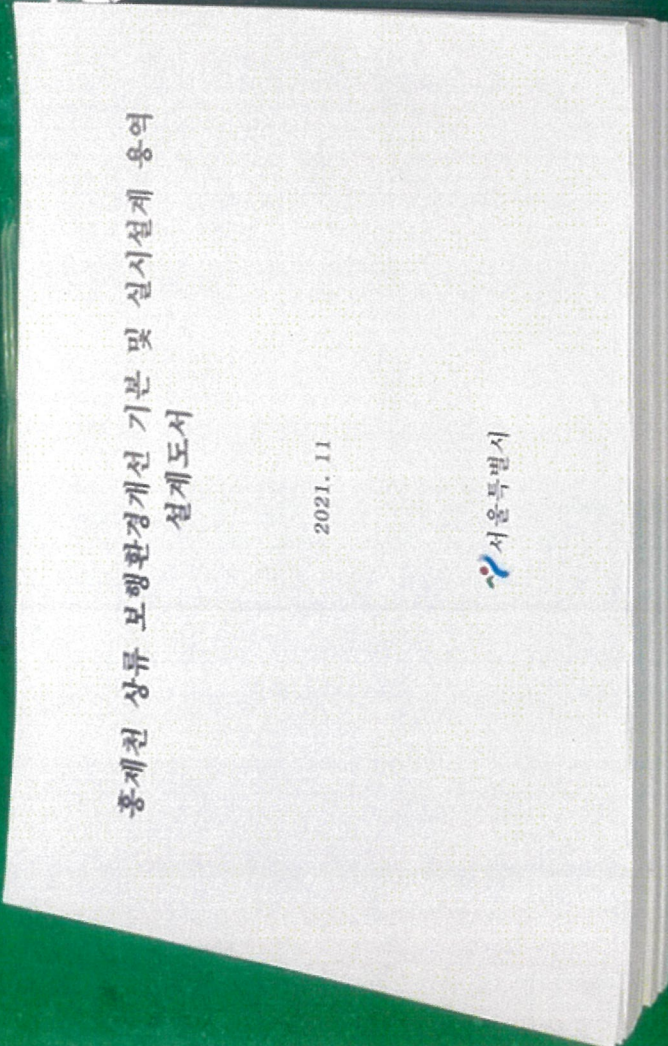 홍제천 상류 보행환경개선 기본 및 실시설계 용역
설계도서
2021. 11
서울특별시